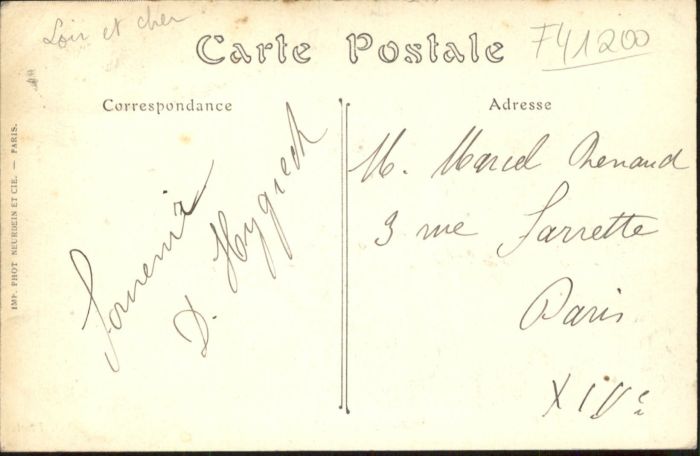 Loir et cher
F41200
Carte Postale
Correspondance
Adresse
Souvenir
D. Hygrech
M. Marcel Renaud
3 rue Sarrette
Paris
XIVe
IMP. PHOT NEURDEIN ET CIE. — PARIS.